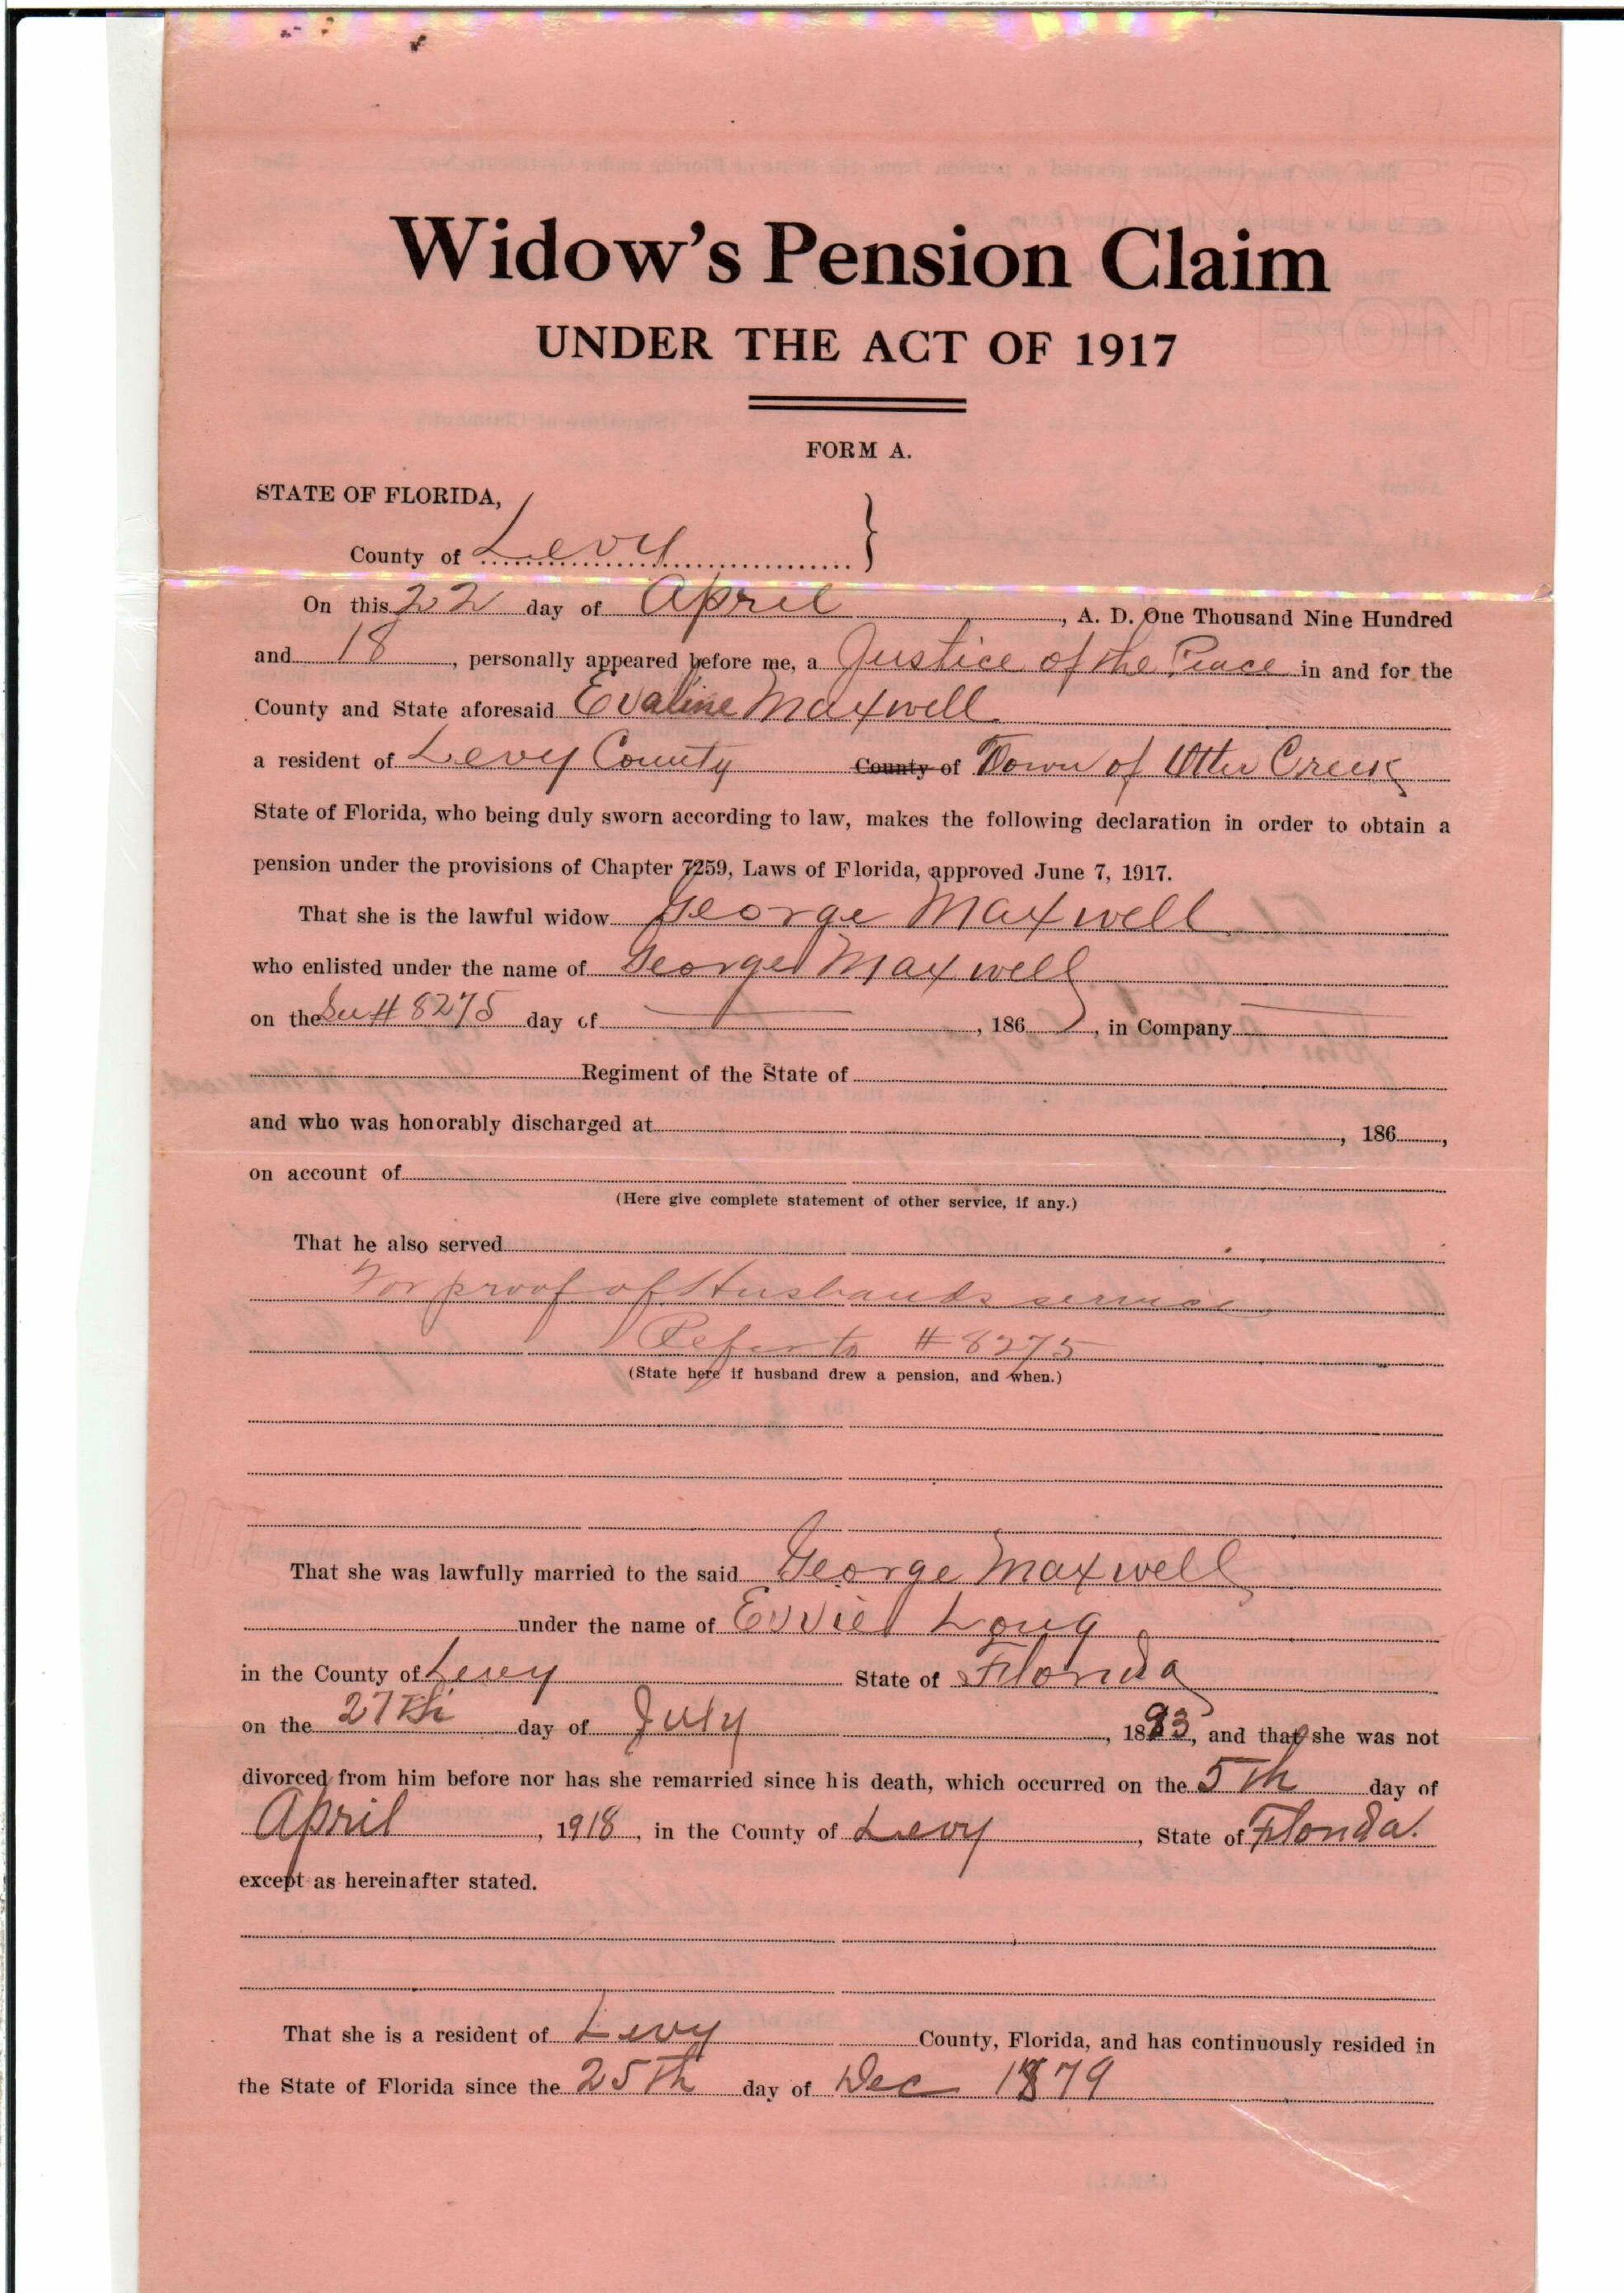 Widow's Pension Claim
UNDER THE ACT OF 1917
FORM A.
STATE OF FLORIDA,
County of Levy }
On this 22 day of April, A. D. One Thousand Nine Hundred
and 18, personally appeared before me, a Justice of the Peace in and for the
County and State aforesaid Evaline Maxwell
a resident of Levy County County of Town of Otter Creek
State of Florida, who being duly sworn according to law, makes the following declaration in order to obtain a
pension under the provisions of Chapter 7259, Laws of Florida, approved June 7, 1917.
That she is the lawful widow George Maxwell
who enlisted under the name of George Maxwell
on the See # 8275 day of , 186 , in Company
Regiment of the State of
and who was honorably discharged at , 186 ,
on account of
(Here give complete statement of other service, if any.)
That he also served
For proof of Husbands service
Refer to # 8275
(State here if husband drew a pension, and when.)
That she was lawfully married to the said George Maxwell
under the name of Evvie Long
in the County of Levy State of Florida
on the 27th day of July, 1893, and that she was not
divorced from him before nor has she remarried since his death, which occurred on the 5th day of
April, 1918, in the County of Levy, State of Florida.
except as hereinafter stated.
That she is a resident of Levy County, Florida, and has continuously resided in
the State of Florida since the 25th day of Dec 1879